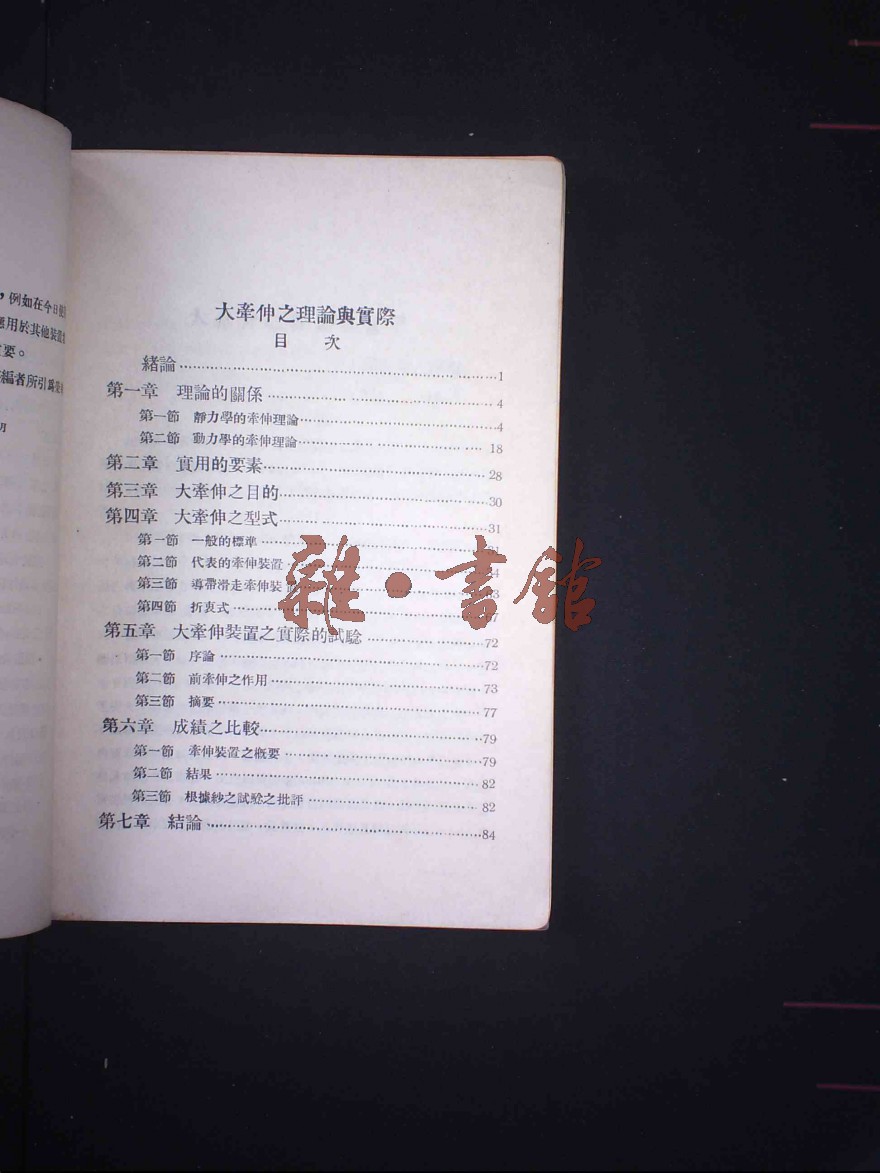 ，例如在今日
應用於其他裝置
要。
編者所引爲
大牽伸之理論與實際
目　次
緒論……1
第一章　理論的關係……4
第一節　靜力學的牽伸理論……4
第二節　動力學的牽伸理論……18
第二章　實用的要素……28
第三章　大牽伸之目的……30
第四章　大牽伸之型式……31
第一節　一般的標準
第二節　代表的牽伸裝置
第三節　導帶滑走牽伸裝
第四節　折衷式
第五章　大牽伸裝置之實際的試驗……72
第一節　序論……72
第二節　前牽伸之作用……73
第三節　摘要……77
第六章　成績之比較……79
第一節　牽伸裝置之概要……79
第二節　結果……82
第三節　根據紗之試驗之批評……82
第七章　結論……84
雜·書館